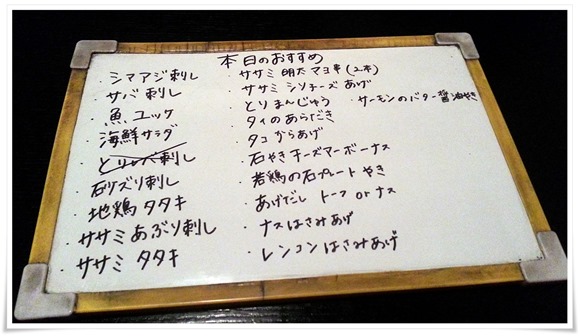 本日のおすすめ
・シマアジ刺し
・サバ刺し
・魚ユッケ
・海鮮サラダ
・とりレバ刺し
・砂ズリ刺し
・地鶏タタキ
・ササミあぶり刺し
・ササミ タタキ
・ササミ 明太マヨ串(2本)
・ササミ シソチーズあげ
・とりまんじゅう
・サーモンのバター醤油やき
・タイのあらだき
・タコからあげ
・石やきチーズマーボーナス
・若鶏の石プレートやき
・あげだし トーフ or ナス
・ナスはさみあげ
・レンコンはさみあげ